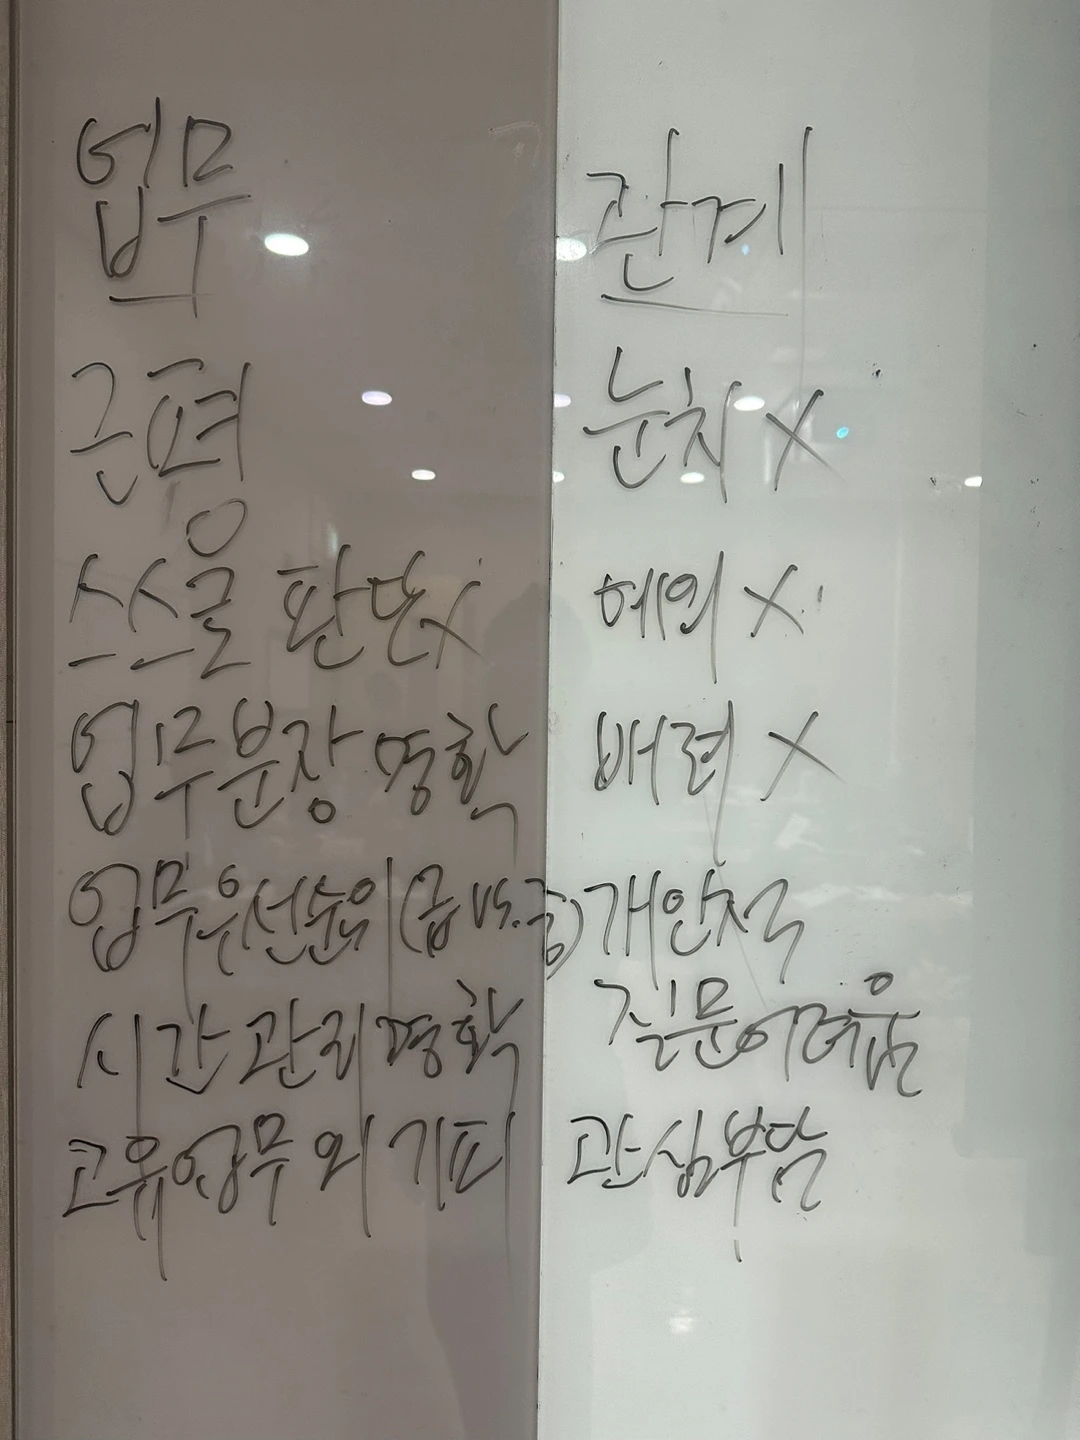 업무
근평
스스로 판단 X
업무분장 명확
업무우선순위 (급 vs. 중)
시간관리 명확
고유업무 외 기피
관계
눈치 X
예의 X
배려 X
개인적
질문어려움
관심부담